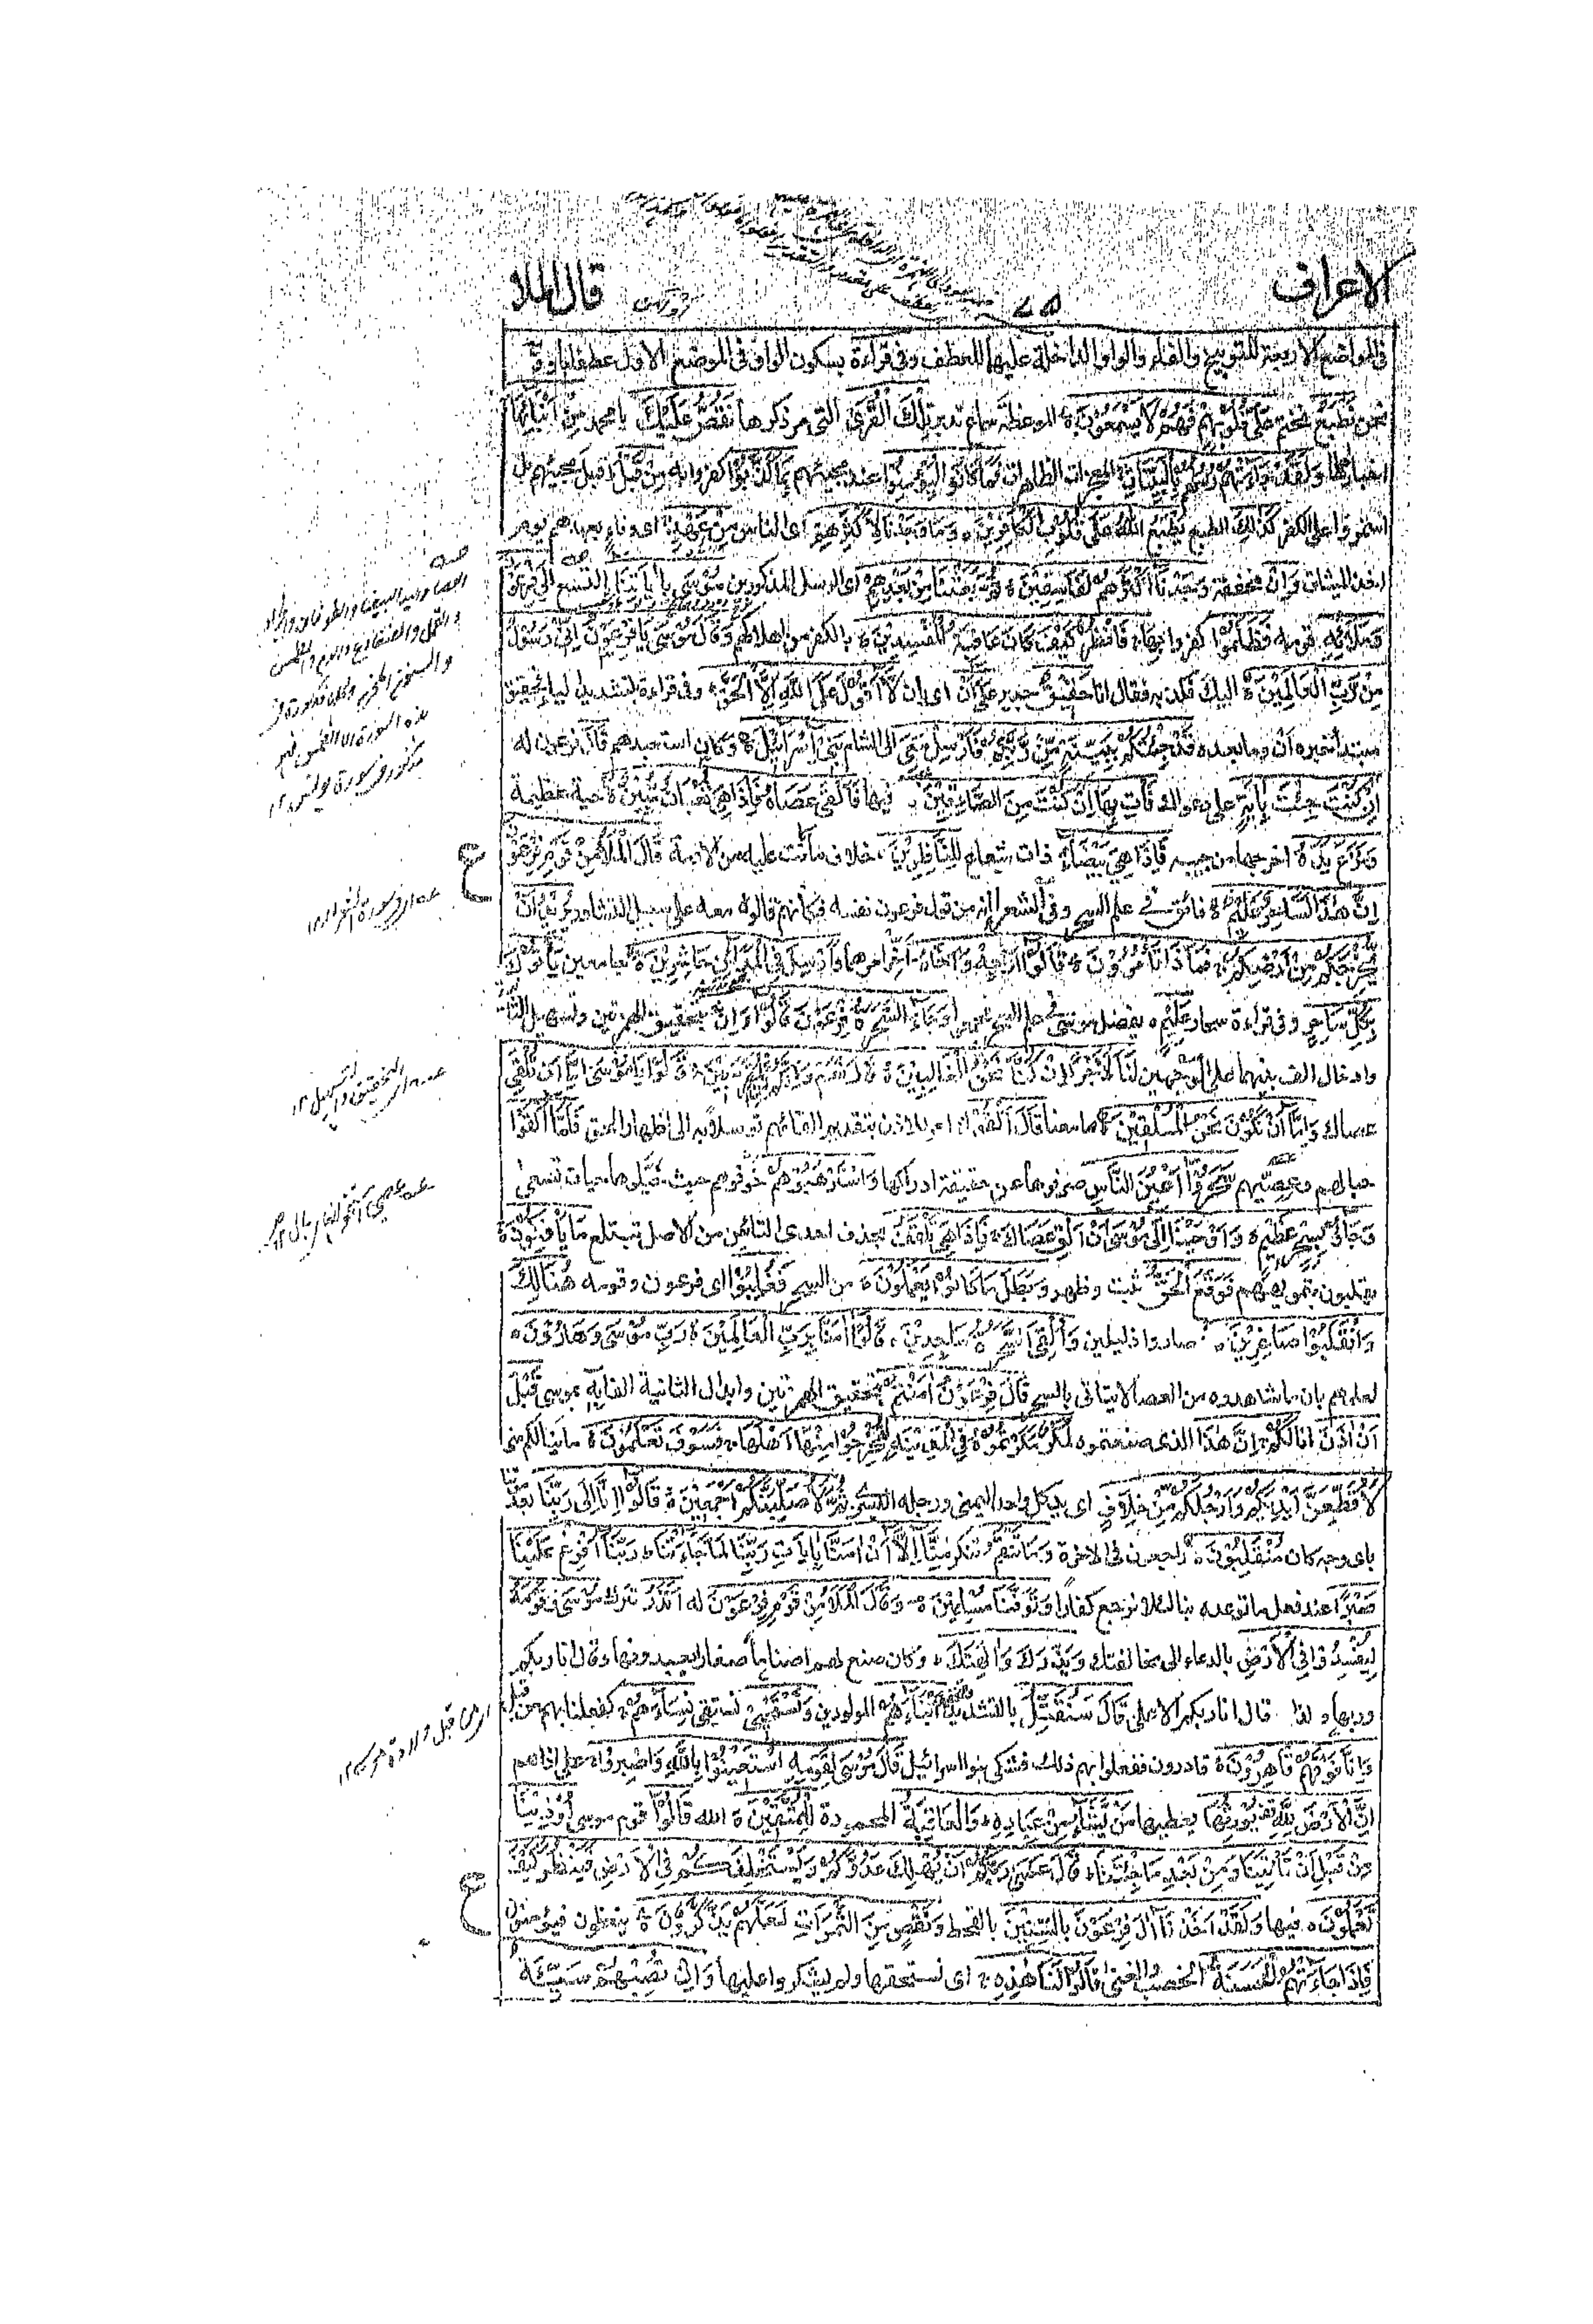 الاعراف
قال الملا
فى المواضع الاربعة للتوبيخ والفاء والواو الداخلة عليها للعطف وفى قراءة بسكون الواو فى الموضع الاول عطفا باو و
نحن نَطْبَعُ نختم عَلٰى قُلُوْبِهِمْ فَهُمْ لَا يَسْمَعُوْنَ الموعظة سماع تدبر تِلْكَ الْقُرٰى التى مر ذكرها نَقُصُّ عَلَيْكَ يا محمد مِنْ اَنْبَائِهَا
اخبارها وَلَقَدْ جَاءَتْهُمْ رُسُلُهُمْ بِالْبَيِّنَاتِ المعجزات الظاهرات فَمَا كَانُوْا لِيُؤْمِنُوْا عند مجيئهم بِمَا كَذَّبُوْا كفروا به مِنْ قَبْلُ قبل مجيئهم بل
استمروا على الكفر كَذٰلِكَ الطبع يَطْبَعُ اللّٰهُ عَلٰى قُلُوْبِ الْكَافِرِيْنَ وَمَا وَجَدْنَا لِاَكْثَرِهِمْ اى الناس مِنْ عَهْدٍ اى وفاء بعهدهم يوم
اخذ الميثاق وَاِنْ مخففة وَجَدْنَا اَكْثَرَهُمْ لَفَاسِقِيْنَ ثُمَّ بَعَثْنَا مِنْ بَعْدِهِمْ اى الرسل المذكورين مُوْسٰى بِاٰيَاتِنَا التسع اِلٰى فِرْعَوْنَ
وَمَلَائِهٖ قومه فَظَلَمُوْا كفروا بِهَا فَانْظُرْ كَيْفَ كَانَ عَاقِبَةُ الْمُفْسِدِيْنَ بالكفر من اهلاكهم وَقَالَ مُوْسٰى يَا فِرْعَوْنُ اِنِّىْ رَسُوْلٌ
مِنْ رَّبِّ الْعَالَمِيْنَ اليك فكذبه فقال انا حَقِيْقٌ جدير عَلٰى اَنْ اى بان لَّا اَقُوْلَ عَلَى اللّٰهِ اِلَّا الْحَقَّ وفى قراءة بتشديد الياء فحقيق
مبتدأ خبره ان وما بعده قَدْ جِئْتُكُمْ بِبَيِّنَةٍ مِّنْ رَّبِّكُمْ فَاَرْسِلْ مَعِىَ الى الشام بَنِىْ اِسْرَائِيْلَ وكان استعبدهم قَالَ فرعون له
اِنْ كُنْتَ جِئْتَ بِاٰيَةٍ على دعواك فَأْتِ بِهَا اِنْ كُنْتَ مِنَ الصَّادِقِيْنَ فيها فَاَلْقٰى عَصَاهُ فَاِذَا هِىَ ثُعْبَانٌ مُّبِيْنٌ حية عظيمة
وَنَزَعَ يَدَهٗ اخرجها من جيبه فَاِذَا هِىَ بَيْضَاءُ ذات شعاع لِلنَّاظِرِيْنَ خلاف ما كانت عليه من الادمة قَالَ الْمَلَاُ مِنْ قَوْمِ فِرْعَوْنَ
اِنَّ هٰذَا لَسَاحِرٌ عَلِيْمٌ فائق فى علم السحر وفى الشعراء انه من قول فرعون نفسه فكانهم قالوه معه على سبيل التشاور يُرِيْدُ اَنْ
يُّخْرِجَكُمْ مِّنْ اَرْضِكُمْ فَمَاذَا تَأْمُرُوْنَ قَالُوْا اَرْجِهْ وَاَخَاهُ اخر امرهما وَاَرْسِلْ فِى الْمَدَائِنِ حَاشِرِيْنَ جامعين يَأْتُوْكَ
بِكُلِّ سَاحِرٍ وفى قراءة سحار عَلِيْمٍ يفضل موسى فى علم السحر فجمعوا وَجَاءَ السَّحَرَةُ فِرْعَوْنَ قَالُوْا ءَاِنَّ بتحقيق الهمزتين وتسهيل الثانية
وادخال الف بينهما على الوجهين لَنَا لَاَجْرًا اِنْ كُنَّا نَحْنُ الْغَالِبِيْنَ قَالَ نَعَمْ وَاِنَّكُمْ لَمِنَ الْمُقَرَّبِيْنَ قَالُوْا يَا مُوْسٰى اِمَّا اَنْ تُلْقِىَ
عصاك وَاِمَّا اَنْ نَّكُوْنَ نَحْنُ الْمُلْقِيْنَ ما معنا قَالَ اَلْقُوْا امر للاذن بتقديم القائهم توسلا به الى اظهار الحق فَلَمَّا اَلْقَوْا
حبالهم وعصيهم سَحَرُوْا اَعْيُنَ النَّاسِ صرفوها عن حقيقة ادراكها وَاسْتَرْهَبُوْهُمْ خوفوهم حيث خيلوها حيات تسعى
وَجَاءُوْا بِسِحْرٍ عَظِيْمٍ وَاَوْحَيْنَا اِلٰى مُوْسٰى اَنْ اَلْقِ عَصَاكَ فَاِذَا هِىَ تَلْقَفُ بحذف احدى التائين من الاصل تبتلع مَا يَأْفِكُوْنَ
يقلبون بتمويههم فَوَقَعَ الْحَقُّ ثبت وظهر وَبَطَلَ مَا كَانُوْا يَعْمَلُوْنَ من السحر فَغُلِبُوْا اى فرعون وقومه هُنَالِكَ
وَانْقَلَبُوْا صَاغِرِيْنَ صاروا ذليلين وَاُلْقِىَ السَّحَرَةُ سَاجِدِيْنَ قَالُوْا اٰمَنَّا بِرَبِّ الْعَالَمِيْنَ رَبِّ مُوْسٰى وَهَارُوْنَ
لعلمهم بان ما شاهدوه من العصا لا يتاتى بالسحر قَالَ فِرْعَوْنُ ءَاٰمَنْتُمْ بتحقيق الهمزتين وابدال الثانية الفا بِهٖ بموسى قَبْلَ
اَنْ اٰذَنَ انا لَكُمْ اِنَّ هٰذَا الذى صنعتموه لَمَكْرٌ مَّكَرْتُمُوْهُ فِى الْمَدِيْنَةِ لِتُخْرِجُوْا مِنْهَا اَهْلَهَا فَسَوْفَ تَعْلَمُوْنَ ما ينالكم منى
لَاُقَطِّعَنَّ اَيْدِيَكُمْ وَاَرْجُلَكُمْ مِّنْ خِلَافٍ اى يد كل واحد اليمنى ورجله اليسرى ثُمَّ لَاُصَلِّبَنَّكُمْ اَجْمَعِيْنَ قَالُوْا اِنَّا اِلٰى رَبِّنَا بعد موتنا
باى وجه كان مُنْقَلِبُوْنَ راجعون فى الاخرة وَمَا تَنْقِمُ تنكر مِنَّا اِلَّا اَنْ اٰمَنَّا بِاٰيَاتِ رَبِّنَا لَمَّا جَاءَتْنَا رَبَّنَا اَفْرِغْ عَلَيْنَا
صَبْرًا عند فعل ما توعده بنا لئلا نرجع كفارا وَتَوَفَّنَا مُسْلِمِيْنَ وَقَالَ الْمَلَاُ مِنْ قَوْمِ فِرْعَوْنَ له اَتَذَرُ تترك مُوْسٰى وَقَوْمَهٗ
لِيُفْسِدُوْا فِى الْاَرْضِ بالدعاء الى مخالفتك وَيَذَرَكَ وَاٰلِهَتَكَ وكان صنع لهم اصناما صغارا يعبدونها وقال انا ربكم
وربها ولذا قال انا ربكم الاعلى قَالَ سَنُقَتِّلُ بالتشديد والتخفيف اَبْنَاءَهُمْ المولودين وَنَسْتَحْيِىْ نستبقى نِسَاءَهُمْ كفعلنا بهم من قبل
وَاِنَّا فَوْقَهُمْ قَاهِرُوْنَ قادرون ففعلوا بهم ذلك فشكى بنو اسرائيل قَالَ مُوْسٰى لِقَوْمِهِ اسْتَعِيْنُوْا بِاللّٰهِ وَاصْبِرُوْا على اذاهم
اِنَّ الْاَرْضَ لِلّٰهِ يُوْرِثُهَا يعطيها مَنْ يَّشَاءُ مِنْ عِبَادِهٖ وَالْعَاقِبَةُ المحمودة لِلْمُتَّقِيْنَ الله قَالُوْا قوم موسى اُوْذِيْنَا
مِنْ قَبْلِ اَنْ تَأْتِيَنَا وَمِنْ بَعْدِ مَا جِئْتَنَا قَالَ عَسٰى رَبُّكُمْ اَنْ يُّهْلِكَ عَدُوَّكُمْ وَيَسْتَخْلِفَكُمْ فِى الْاَرْضِ فَيَنْظُرَ كَيْفَ
تَعْمَلُوْنَ فيها وَلَقَدْ اَخَذْنَا اٰلَ فِرْعَوْنَ بِالسِّنِيْنَ بالقحط وَنَقْصٍ مِّنَ الثَّمَرَاتِ لَعَلَّهُمْ يَذَّكَّرُوْنَ يتعظون فيؤمنون
فَاِذَا جَاءَتْهُمُ الْحَسَنَةُ الخصب والغنى قَالُوْا لَنَا هٰذِهٖ اى نستحقها ولم يشكروا عليها وَاِنْ تُصِبْهُمْ سَيِّئَةٌ
العصا واليد البيضاء والطوفان والجراد
والقمل والضفادع والدم والطمس
مذكور فى سورة يونس ١٢
ع
التحقيق والتسهيل ١٢
اى من قبل ولادة موسى ١٢
ع